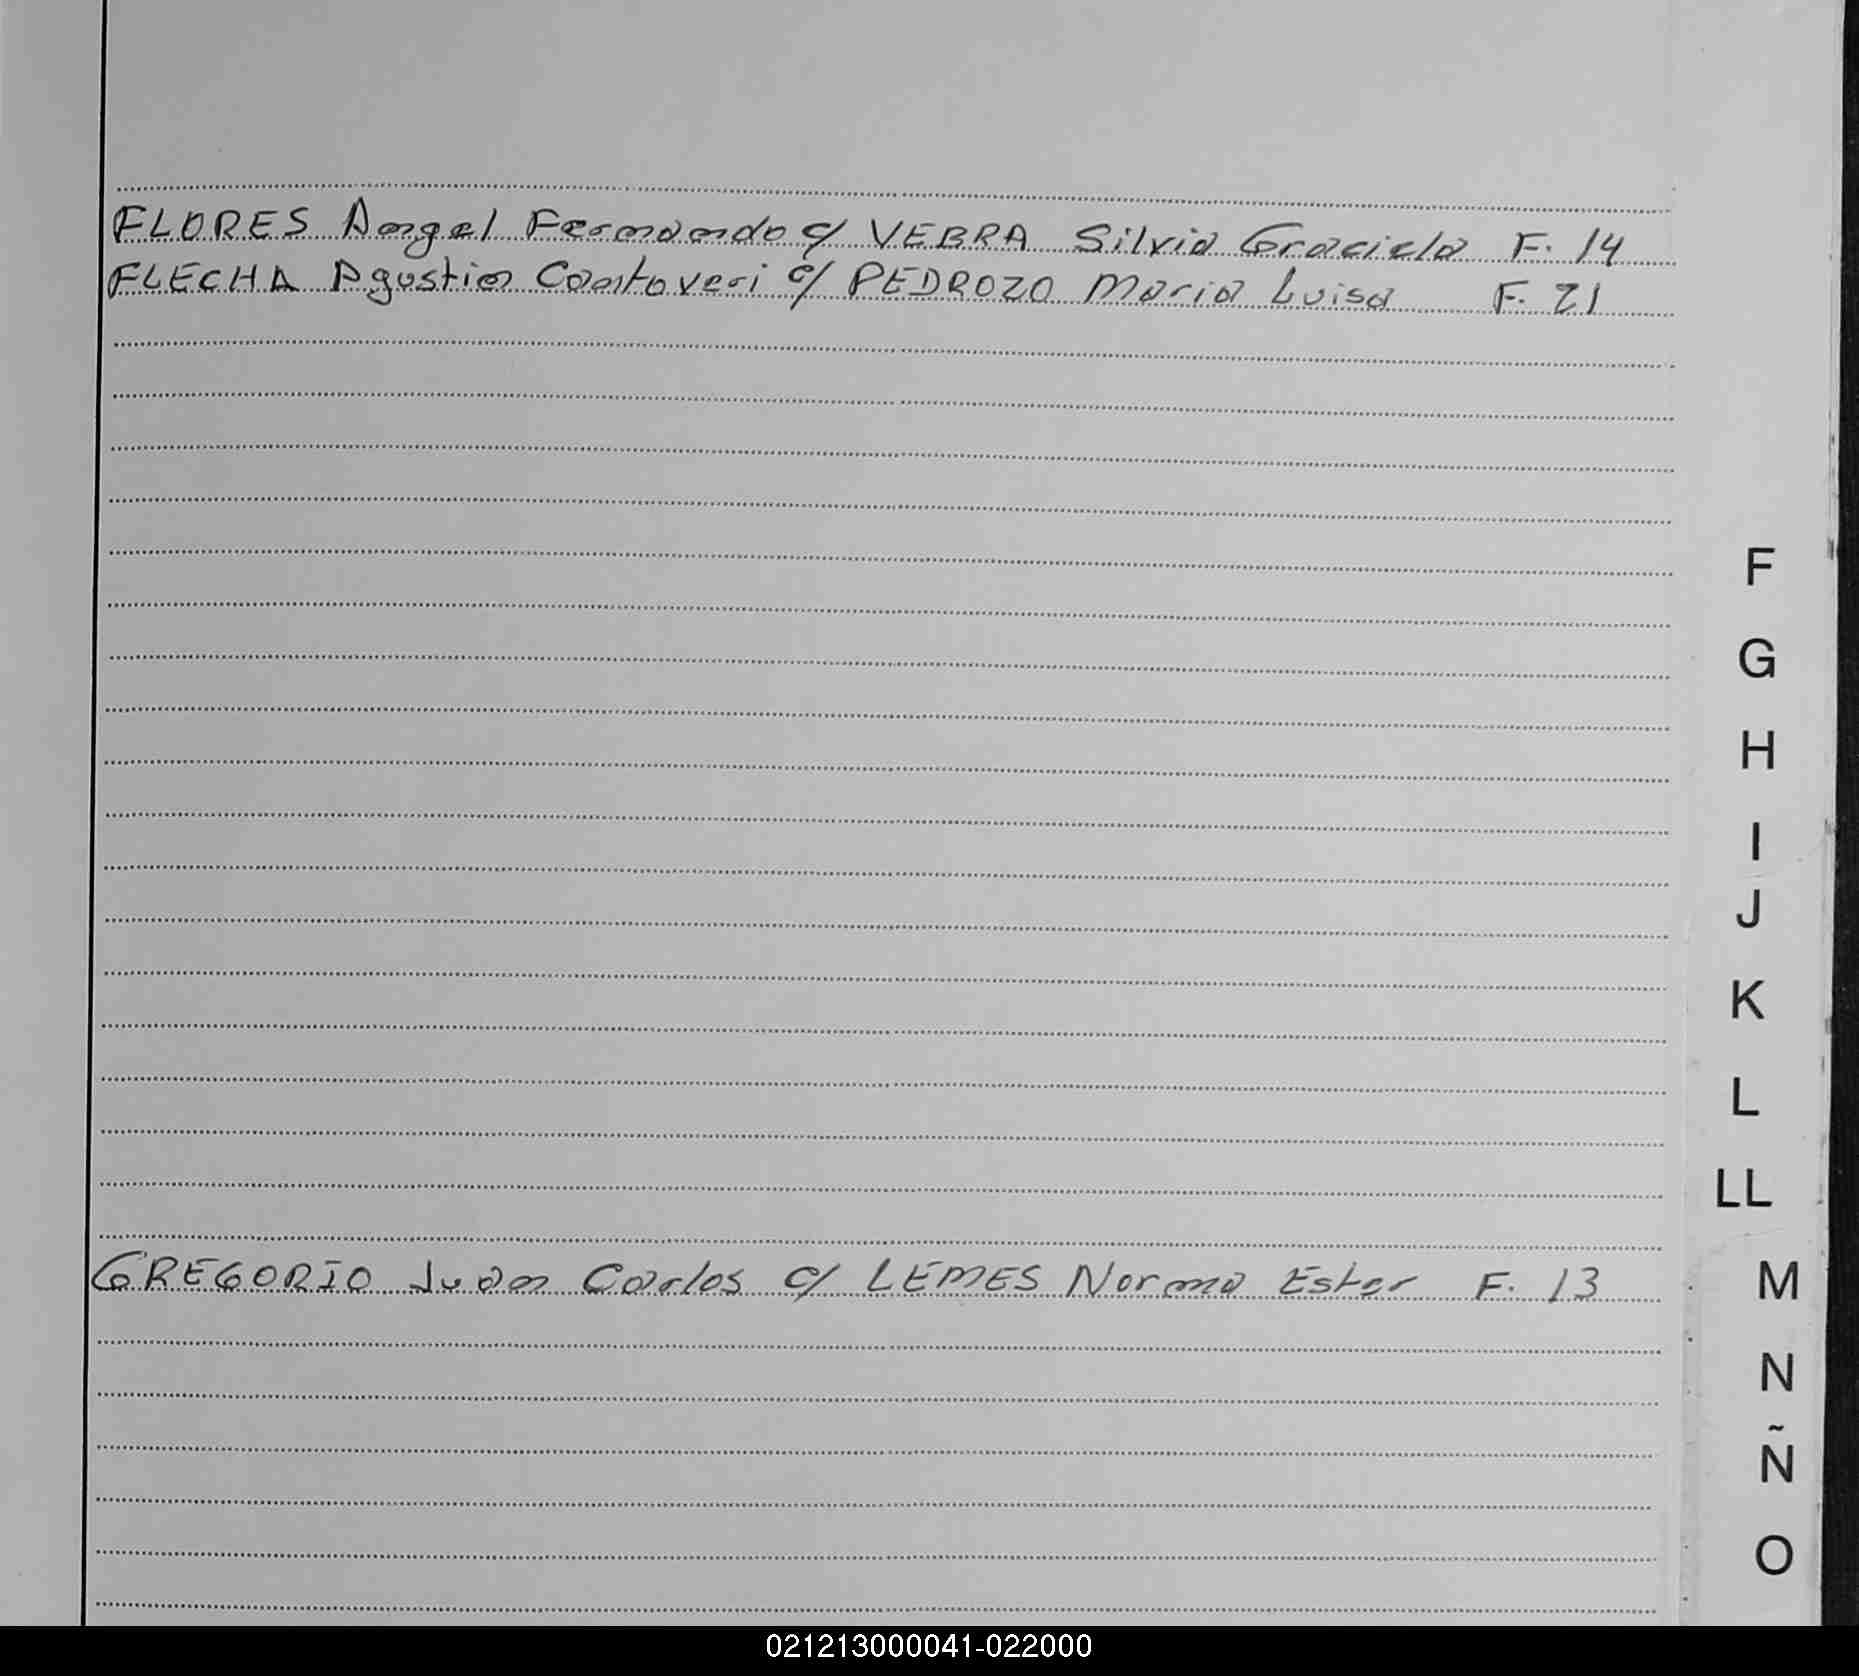 FLORES Angel Fernando c/ VERRA Silvia Graciela F. 14
FLECHA Agustin Cantoveri c/ PEDROZO Maria Luisa F. 21
F
G
H
I
J
K
L
LL
GREGORIO Juan Carlos c/ LEMES Norma Ester F. 13
M
N
Ñ
O
021213000041-022000